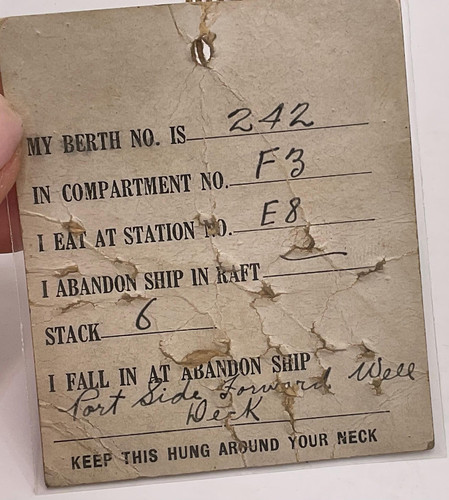 MY BERTH NO. IS 242
IN COMPARTMENT NO. F3
I EAT AT STATION NO. E8
I ABANDON SHIP IN RAFT
STACK 6
I FALL IN AT ABANDON SHIP
Port Side Forward Well
Deck
KEEP THIS HUNG AROUND YOUR NECK